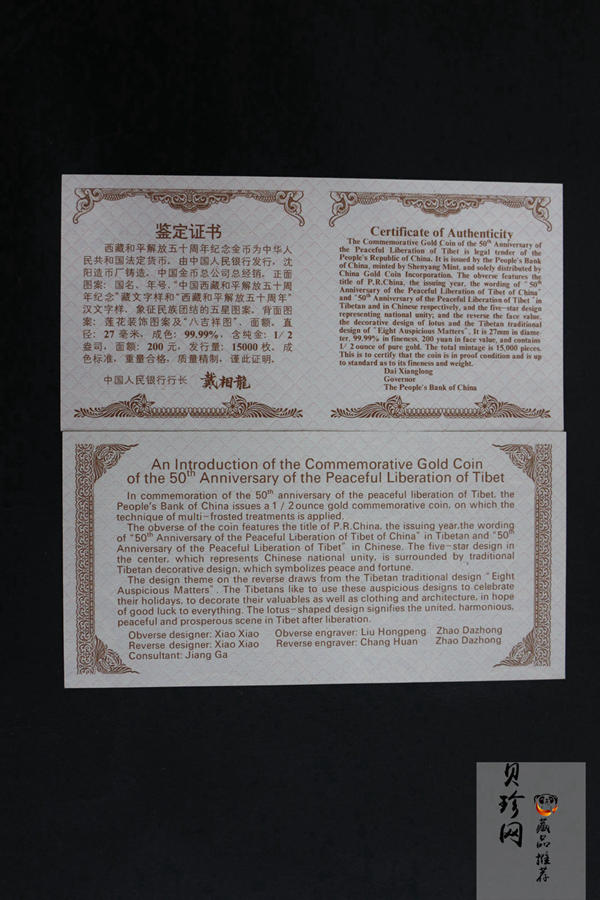 鉴定证书
西藏和平解放五十周年纪念金币为中华人
民共和国法定货币。由中国人民银行发行，沈
阳造币厂铸造。中国金币总公司总经销。正面
图案：国名、年号、“中国西藏和平解放五十周
年纪念”藏文字样和“西藏和平解放五十周年”
汉文字样、象征民族团结的五星图案，背面图
案：莲花装饰图案及“八吉祥图”、面额。直
径：27毫米，成色：99.99%，含纯金：1/2
盎司，面额：200元，发行量：15000枚。成
色标准，重量合格，质量精制，谨此证明。
中国人民银行行长 戴相龙
Certificate of Authenticity
The Commemorative Gold Coin of the 50th Anniversary of
the Peaceful Liberation of Tibet is legal tender of the
People's Republic of China. It is issued by the People's Bank
of China, minted by Shenyang Mint, and solely distributed by
China Gold Coin Incorporation. The obverse features the
title of P.R.China, the issuing year, the wording of "50th
Anniversary of the Peaceful Liberation of Tibet of China"
and "50th Anniversary of the Peaceful Liberation of Tibet" in
Tibetan and in Chinese respectively, and the five-star design
representing national unity; and the reverse the face value,
the decorative design of lotus and the Tibetan traditional
design of "Eight Auspicious Matters". It is 27mm in diame-
ter, 99.99% in fineness, 200 yuan in face value, and contains
1/2 ounce of pure gold. The total mintage is 15,000 pieces.
This is to certify that the coin is in proof condition and is up
to standard as to its fineness and weight.
Dai Xianglong
Governor
The People's Bank of China
An Introduction of the Commemorative Gold Coin
of the 50th Anniversary of the Peaceful Liberation of Tibet
In commemoration of the 50th anniversary of the peaceful liberation of Tibet, the
People's Bank of China issues a 1/2 ounce gold commemorative coin, on which the
technique of multi-frosted treatments is applied.
The obverse of the coin features the title of P.R.China, the issuing year,the wording
of "50th Anniversary of the Peaceful Liberation of Tibet of China" in Tibetan and "50th
Anniversary of the Peaceful Liberation of Tibet" in Chinese. The five-star design in
the center, which represents Chinese national unity, is surrounded by traditional
Tibetan decorative design, which symbolizes peace and fortune.
The design theme on the reverse draws from the Tibetan traditional design "Eight
Auspicious Matters". The Tibetans like to use these auspicious designs to celebrate
their holidays, to decorate their valuables as well as clothing and architecture, in hope
of good luck to everything. The lotus-shaped design signifies the united, harmonious,
peaceful and prosperous scene in Tibet after liberation.
Obverse designer: Xiao Xiao Obverse engraver: Liu Hongpeng Zhao Dazhong
Reverse designer: Xiao Xiao Reverse engraver: Chang Huan Zhao Dazhong
Consultant: Jiang Ga
贝珍网
藏品推荐